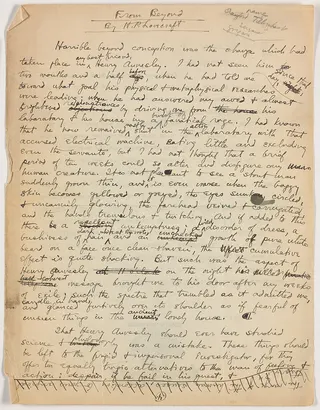 From Beyond
By H.P. Lovecraft
Horrible beyond conception was the change which had
taken place in my best friend, Henry Annesley. I had not seen him since that day
two months and a half before when he had told me
toward what goal his physical & metaphysical researches
were leading. When he had answered my awed & almost
frightened remonstrances by driving me from
laboratory & his house in a fanatical rage, I had known
that he now remained mostly shut in the laboratory with that
accursed electrical machine, eating little and excluding
even the servants, but I had not thought that a brief
period of ten weeks could so alter and disfigure any
human creature. It is not pleasant to see a stout man
suddenly grown thin, and it is even worse when the baggy
skin becomes yellowed or greyed, the eyes sunken, circled,
& uncannily glowing, the forehead veined & corrugated,
and the hands tremulous & twitching. And if added to this
there be a repellent unkemptness; a wild disorder of dress, a
bushiness of hair and an growth of pure white
beard on a face once clean-shaven, the cumulative
effect is quite shocking. But such was the aspect of
Henry Annesley on the night his
message brought me to his door after my weeks
of exile; such the spectre that trembled as it admitted me,
candle in hand,
and glanced furtively over its shoulder as if fearful of
unseen things in the ancient lonely house.
That Henry Annesley should ever have studied
science & was a mistake. These things should
be left to the frigid & impersonal investigator, for they
offer two equally tragic alternatives to the man of feeling &
action; despair if he fail in his quest,